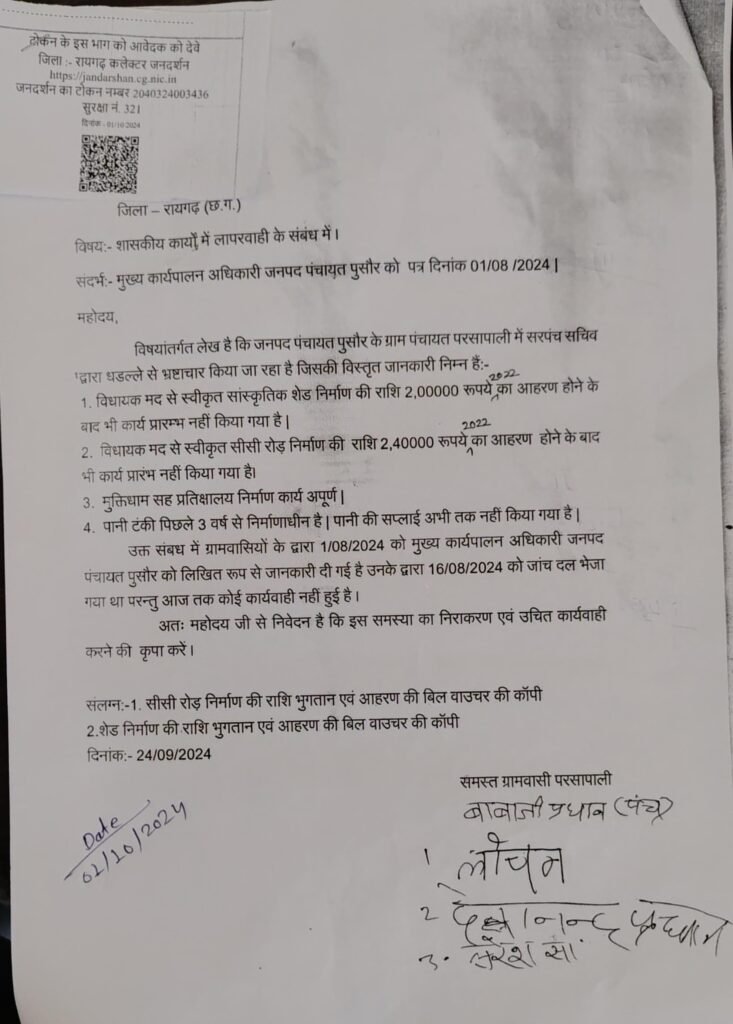 टोकन के इस भाग को आवेदक को देवे
जिला :- रायगढ़ कलेक्टर जनदर्शन
https://jandarshan.cg.nic.in
जनदर्शन का टोकन नम्बर 2040324003436
सुरक्षा नं. 321
दिनांक - 01/10/2024
जिला – रायगढ़ (छ.ग.)
विषय:- शासकीय कार्यों में लापरवाही के संबंध में।
संदर्भ:- मुख्य कार्यपालन अधिकारी जनपद पंचायत पुसौर को पत्र दिनांक 01/08 /2024|
महोदय,
विषयांतर्गत लेख है कि जनपद पंचायत पुसौर के ग्राम पंचायत परसापाली में सरपंच सचिव
द्वारा धडल्ले से भ्रष्टाचार किया जा रहा है जिसकी विस्तृत जानकारी निम्न हैं:-
1. विधायक मद से स्वीकृत सांस्कृतिक शेड निर्माण की राशि 2,00000 रूपये 2022 का आहरण होने के
बाद भी कार्य प्रारम्भ नहीं किया गया है|
2. विधायक मद से स्वीकृत सीसी रोड़ निर्माण की राशि 2,40000 रूपये 2022 का आहरण होने के बाद
भी कार्य प्रारंभ नहीं किया गया है।
3. मुक्तिधाम सह प्रतिक्षालय निर्माण कार्य अपूर्ण|
4. पानी टंकी पिछले 3 वर्ष से निर्माणाधीन है| पानी की सप्लाई अभी तक नहीं किया गया है|
उक्त संबध में ग्रामवासियों के द्वारा 1/08/2024 को मुख्य कार्यपालन अधिकारी जनपद
पंचायत पुसौर को लिखित रूप से जानकारी दी गई है उनके द्वारा 16/08/2024 को जांच दल भेजा
गया था परन्तु आज तक कोई कार्यवाही नहीं हुई है।
अतः महोदय जी से निवेदन है कि इस समस्या का निराकरण एवं उचित कार्यवाही
करने की कृपा करें।
संलग्न:-1. सीसी रोड़ निर्माण की राशि भुगतान एवं आहरण की बिल वाउचर की कॉपी
2.शेड निर्माण की राशि भुगतान एवं आहरण की बिल वाउचर की कॉपी
दिनांक:- 24/09/2024
समस्त ग्रामवासी परसापाली
बाबाजी प्रधान (पंच)
Date
01/10/2024
1 लोचन
2
3.